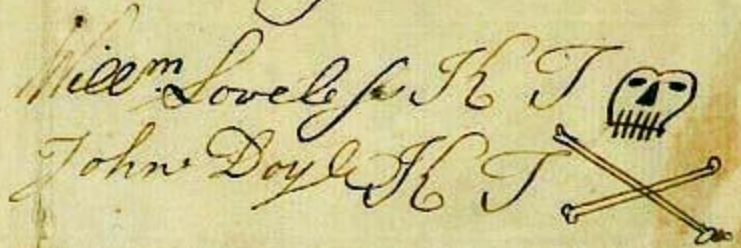 Willm Loveless K T
John Doyle K T